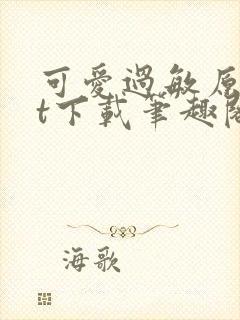 可愛過敏原
t下載筆趣閣
海歌